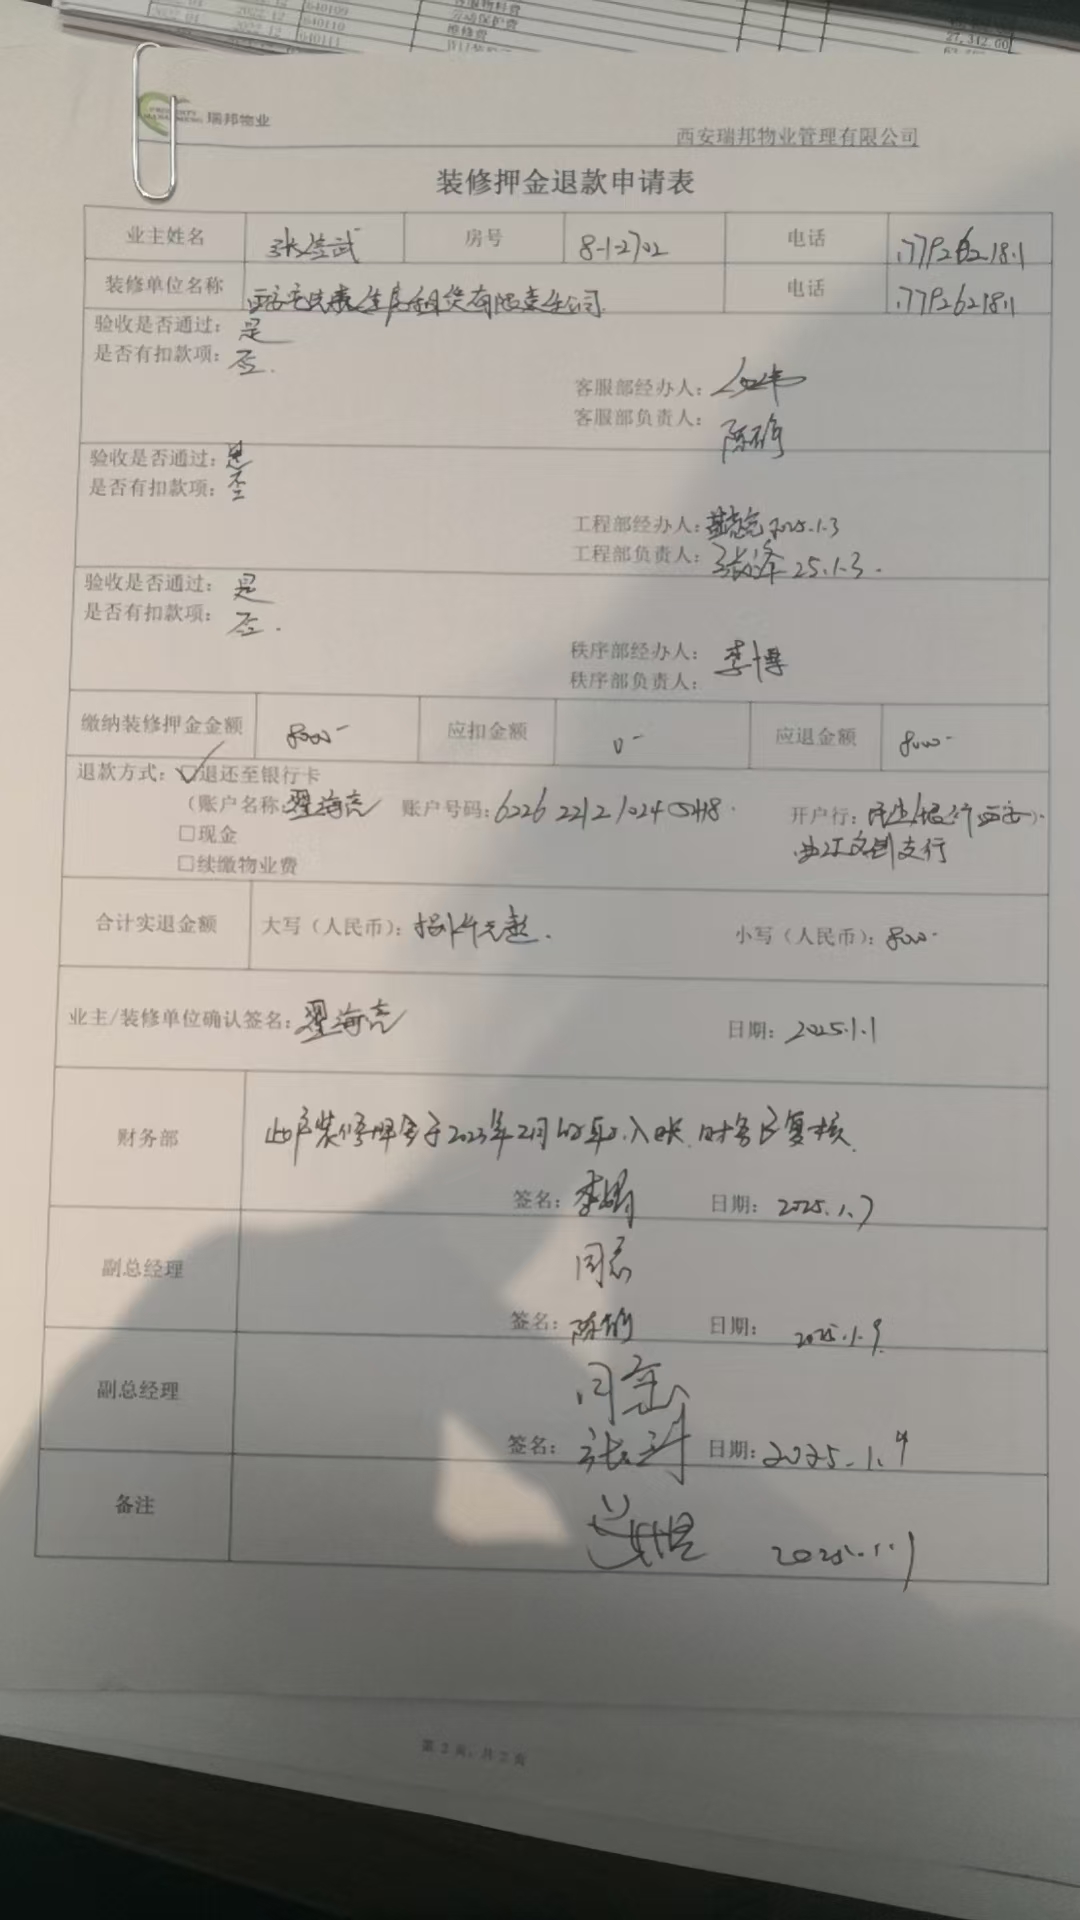 640109
2022.12 640110 劳动保护费
2022.12 640111 维修费
27,312.00
瑞邦物业
西安瑞邦物业管理有限公司
装修押金退款申请表
业主姓名 房号 8-1-2702 电话
装修单位名称 有限责任公司 电话 17792621811
验收是否通过：是
是否有扣款项：否.
客服部经办人：
客服部负责人：
验收是否通过：是
是否有扣款项：否
工程部经办人： 2025.1.3
工程部负责人： 25.1.3.
验收是否通过：是
是否有扣款项：否.
秩序部经办人：李博
秩序部负责人：
缴纳装修押金金额 8000- 应扣金额 0- 应退金额 8000-
退款方式：☑退还至银行卡
（账户名称：翟海亮 账户号码：6226 2212 1024 5418 开户行：民生银行西安）
曲江文创支行
□现金
□续缴物业费
合计实退金额 大写（人民币）：捌仟元整. 小写（人民币）：8000-
业主/装修单位确认签名：翟海亮 日期：2025.1.1
财务部 此户装修押金于2023年2月 入账.财务已复核.
签名：李娟 日期：2025.1.7
副总经理 同意
签名： 日期：2025.1.9
副总经理 同意
签名： 日期：2025.1.
备注
2025.1.
第 2 页，共 2 页